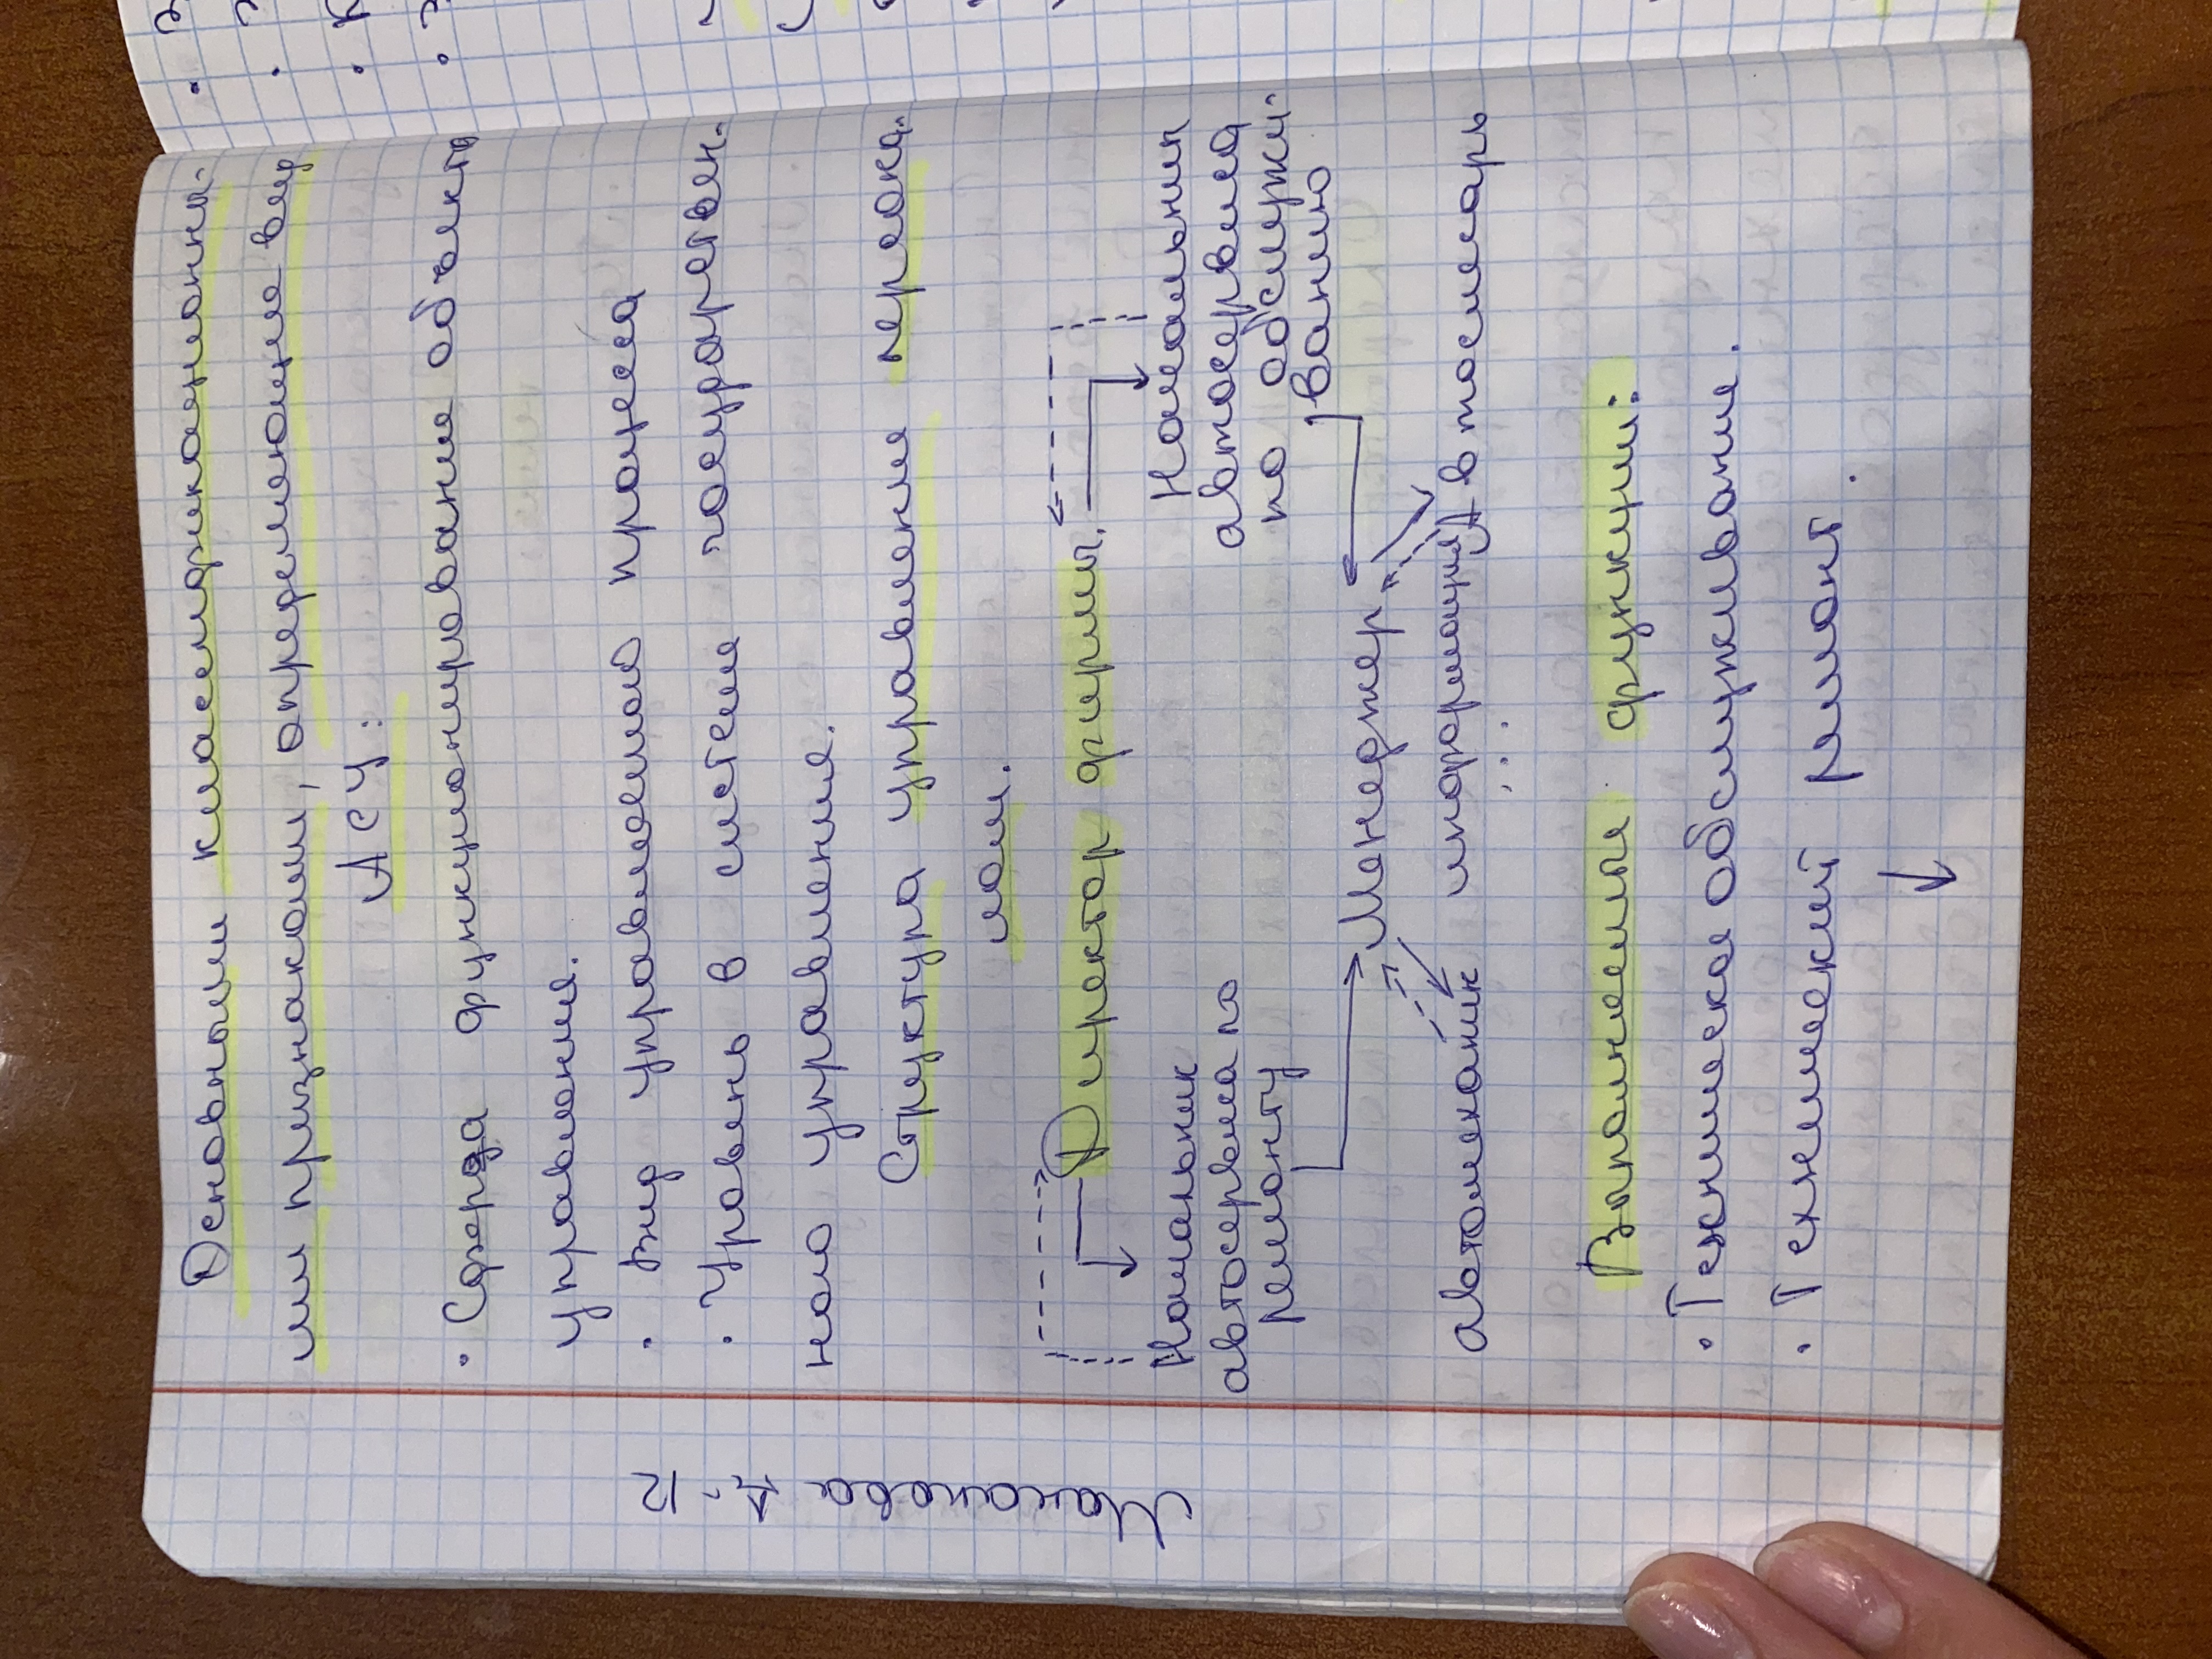 Основными классификационны-
ми признаками, определяющие вид
АСУ:
• Сфера функционирования объекта
управления.
• Вид управляемого процесса
• Уровень в системе государствен-
ного управления.
Структура управления персона-
лом.
Директор фирмы.
Начальник
автосервиса по
ремонту
Начальник
автосервиса
по обслужи-
ванию
Менеджер
автомеханик
информация
Автослесарь
Выполняемые функции:
• Техническое обслуживание.
• Технический ремонт.
12